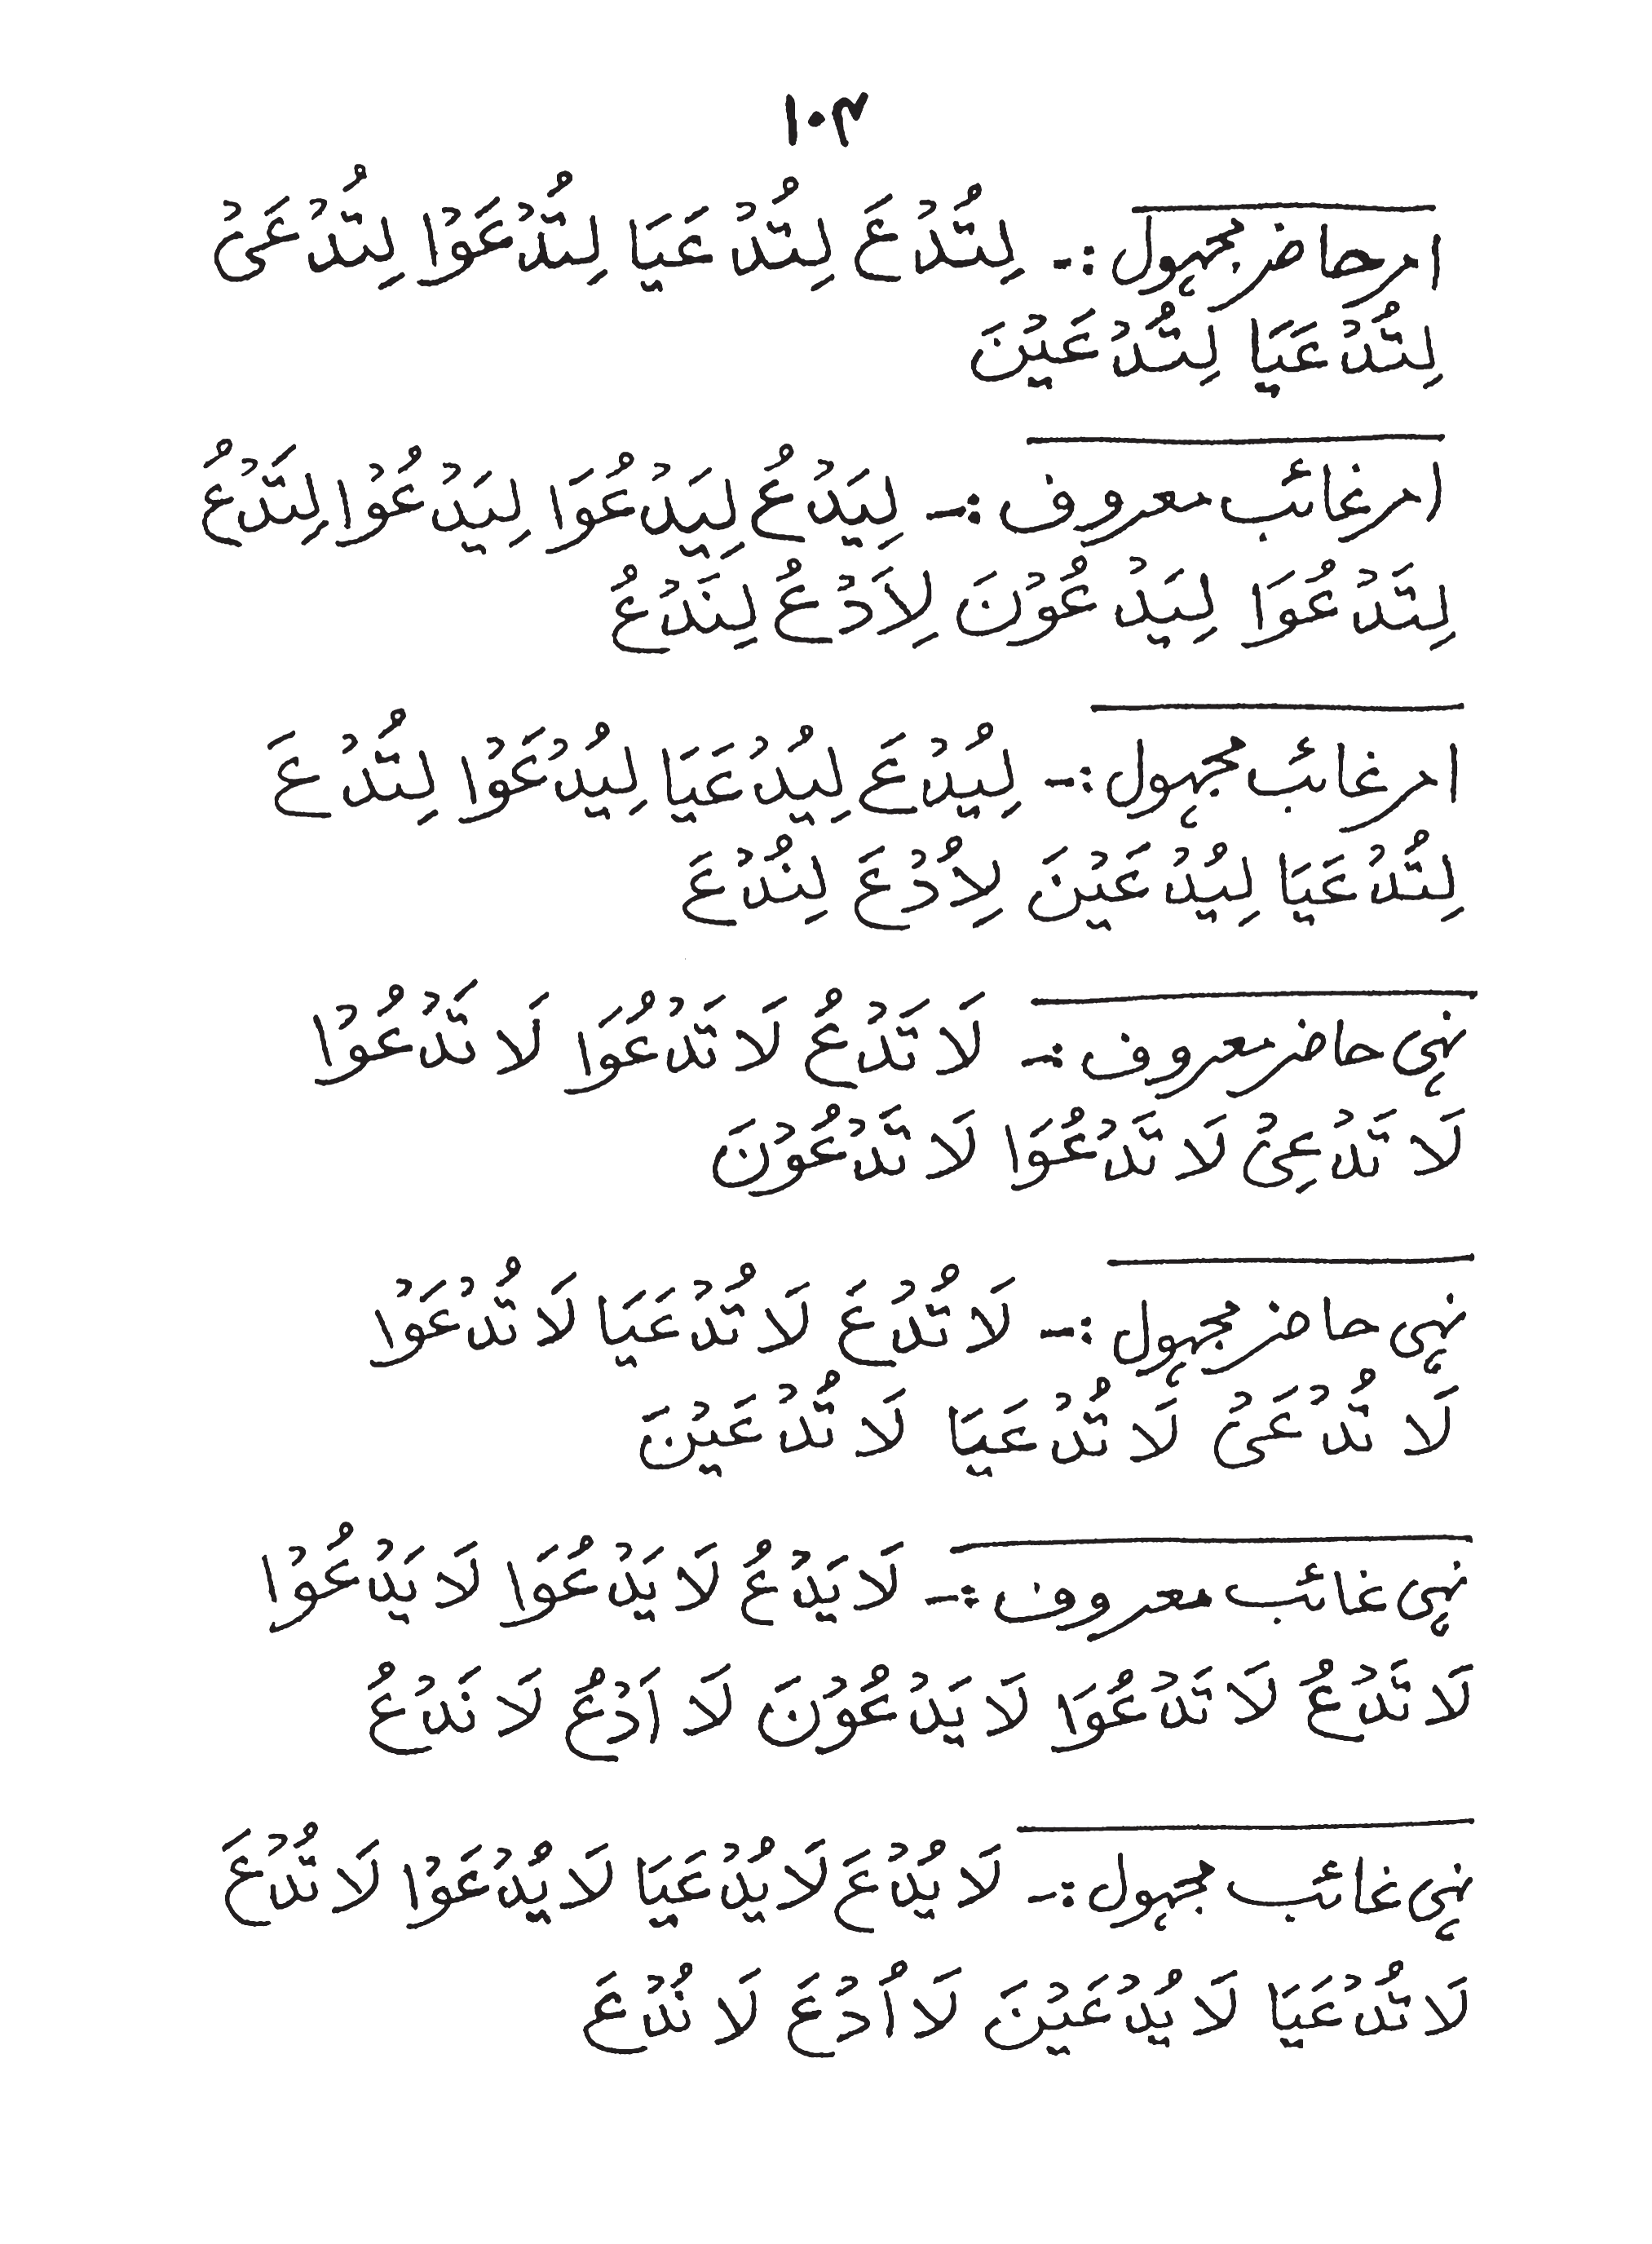 ۱۰۴
امر حاضر مجہول :- لِتُدْعَ لِتُدْعَيَا لِتُدْعَوْا لِتُدْعَىْ
لِتُدْعَيَا لِتُدْعَيْنَ
امر غائب معروف :- لِيَدْعُ لِيَدْعُوَا لِيَدْعُوْا لِتَدْعُ
لِتَدْعُوَا لِيَدْعُوْنَ لِاَدْعُ لِنَدْعُ
امر غائب مجہول :- لِيُدْعَ لِيُدْعَيَا لِيُدْعَوْا لِتُدْعَ
لِتُدْعَيَا لِيُدْعَيْنَ لِاُدْعَ لِنُدْعَ
نہی حاضر معروف :- لَا تَدْعُ لَا تَدْعُوَا لَا تَدْعُوْا
لَا تَدْعِىْ لَا تَدْعُوَا لَا تَدْعُوْنَ
نہی حاضر مجہول :- لَا تُدْعَ لَا تُدْعَيَا لَا تُدْعَوْا
لَا تُدْعَىْ لَا تُدْعَيَا لَا تُدْعَيْنَ
نہی غائب معروف :- لَا يَدْعُ لَا يَدْعُوَا لَا يَدْعُوْا
لَا تَدْعُ لَا تَدْعُوَا لَا يَدْعُوْنَ لَا اَدْعُ لَا نَدْعُ
نہی غائب مجہول :- لَا يُدْعَ لَا يُدْعَيَا لَا يُدْعَوْا لَا تُدْعَ
لَا تُدْعَيَا لَا يُدْعَيْنَ لَا اُدْعَ لَا نُدْعَ